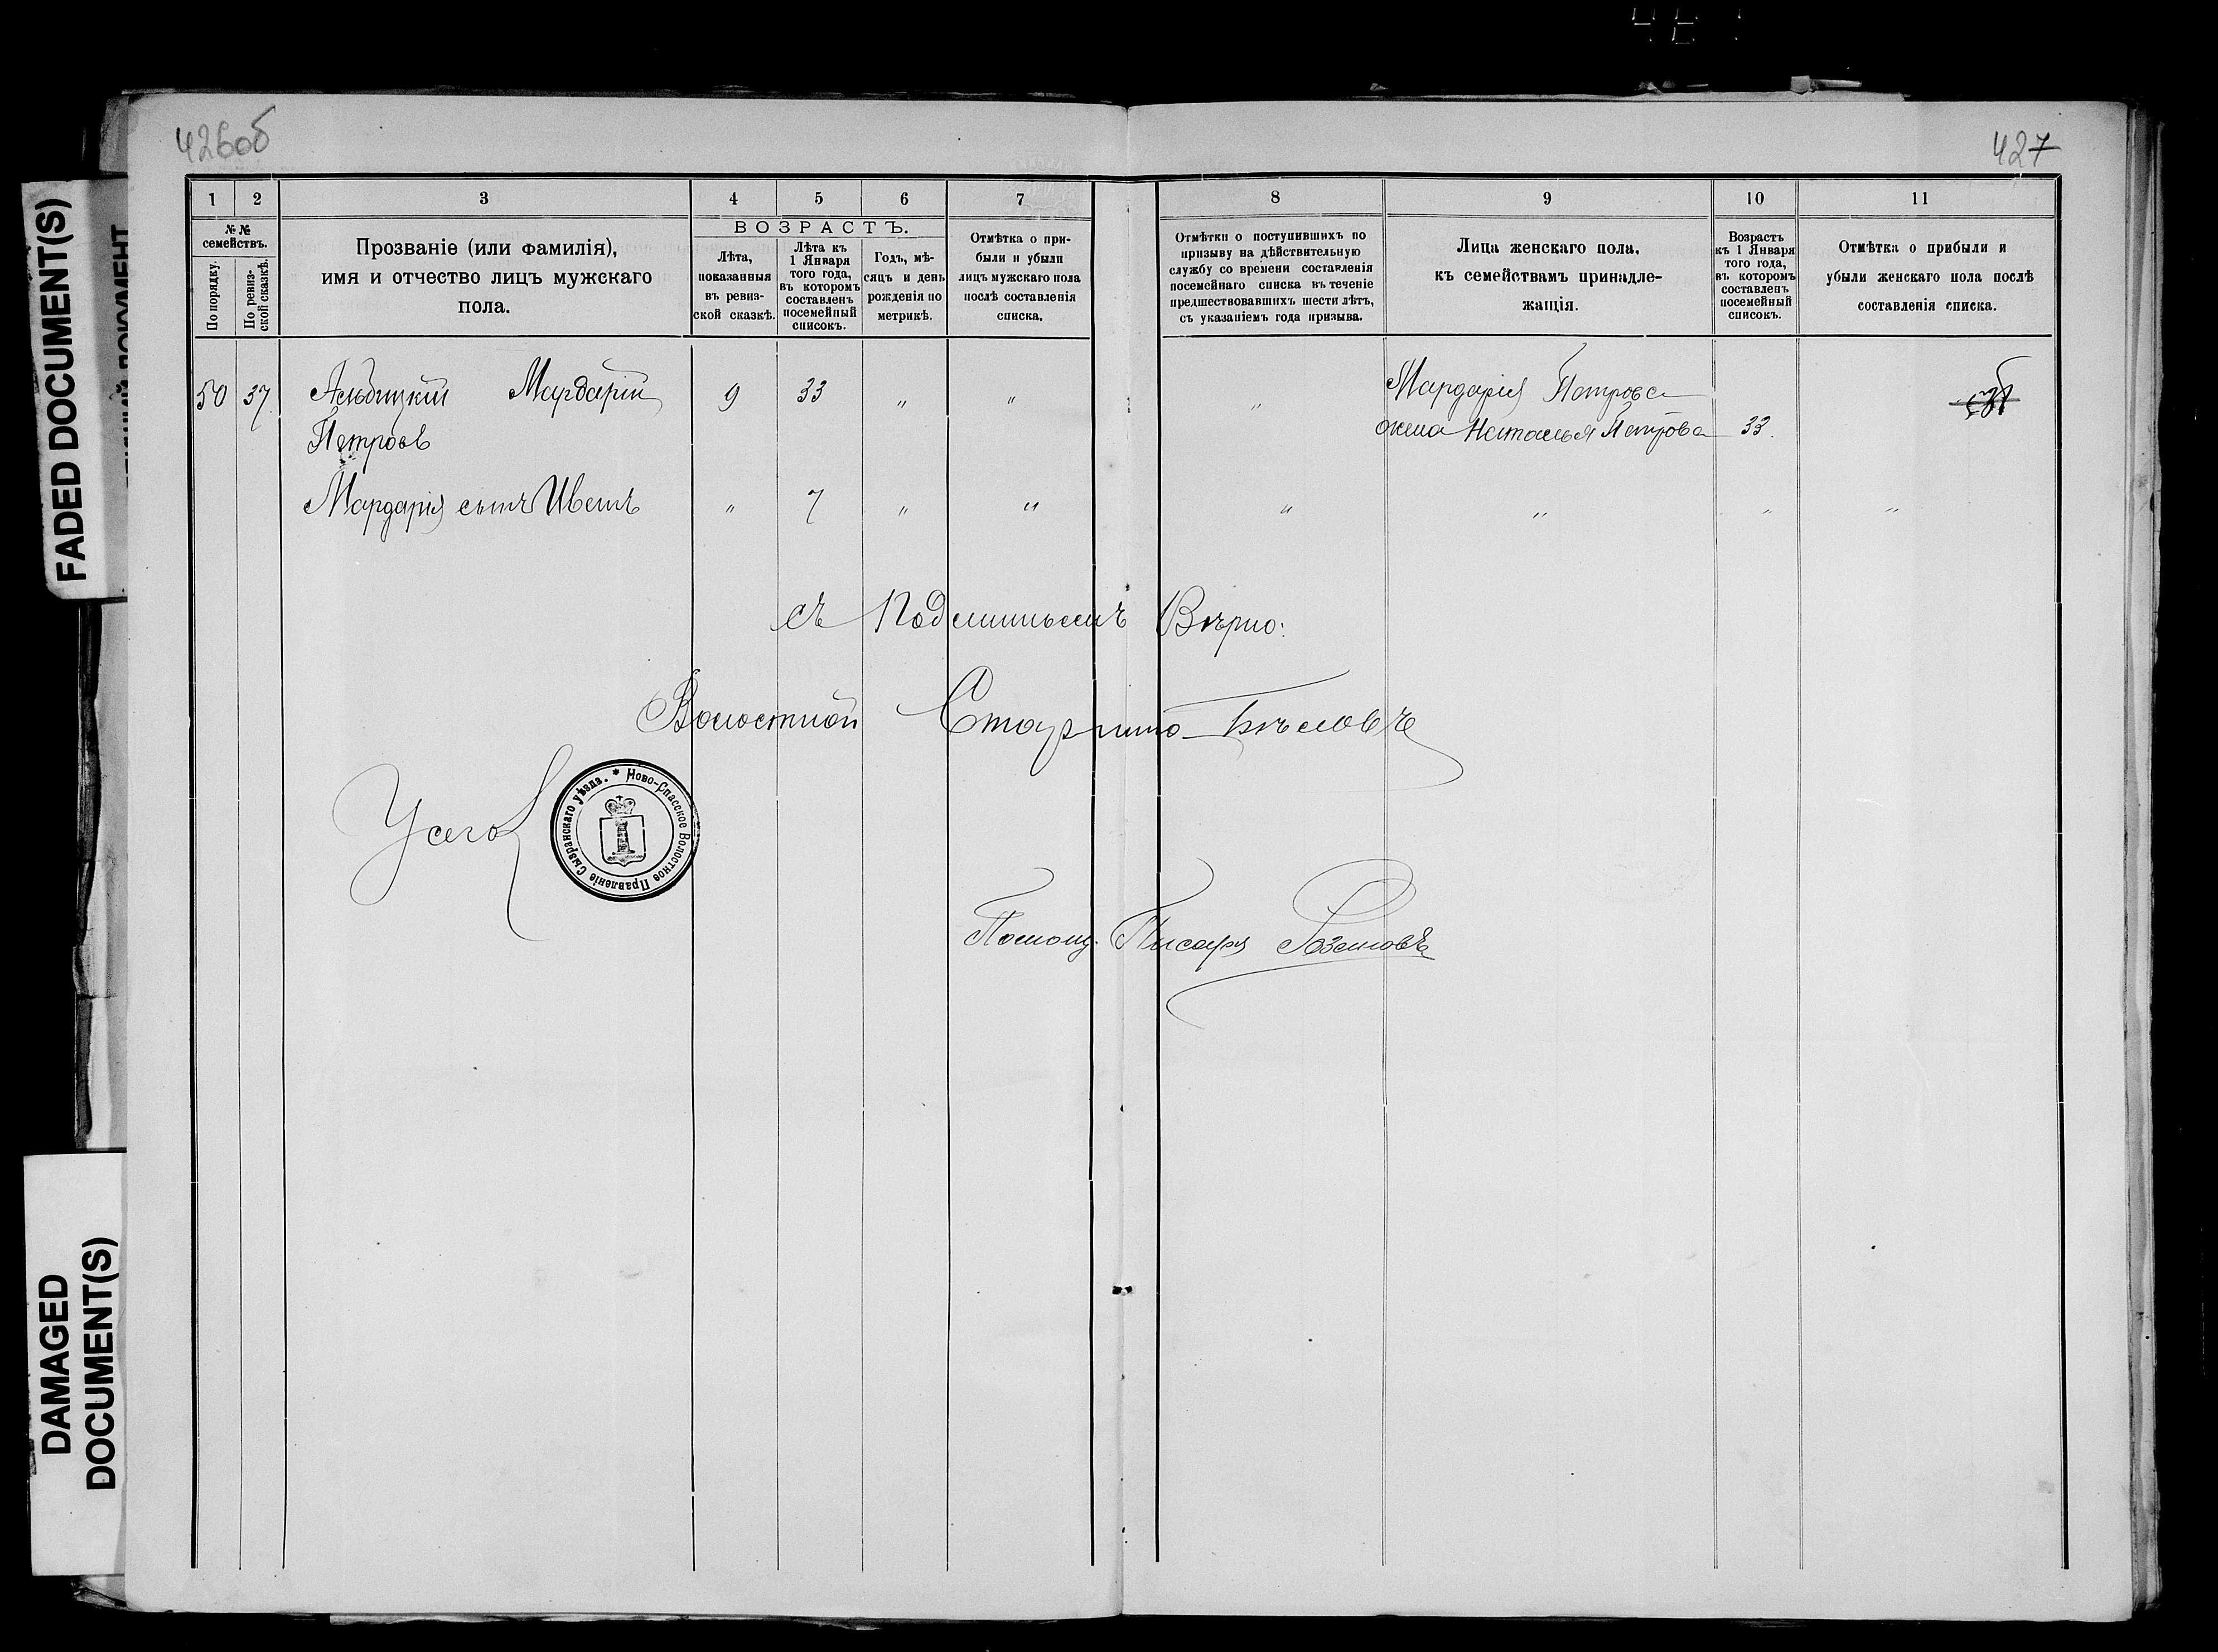 426об
427
1 2 3 4 5 6 7 8 9 10 11
№ № семействъ.
По порядку.
По ревиз-
ской сказкѣ.
Прозваніе (или фамилія),
имя и отчество лицъ мужскаго
пола.
ВОЗРАСТЪ.
Лѣта,
показанныя
въ ревиз-
ской сказкѣ.
Лѣта къ
1 Января
того года,
въ которомъ
составленъ
посемейный
списокъ.
Годъ, мѣ-
сяцъ и день
рожденія по
метрикѣ.
Отмѣтка о при-
были и убыли
лицъ мужскаго пола
послѣ составленія
списка.
Отмѣтки о поступившихъ по
призыву на дѣйствительную
службу со времени составленія
посемейнаго списка въ теченіе
предшествовавшихъ шести лѣтъ,
съ указаніемъ года призыва.
Лица женскаго пола,
къ семействамъ принадле-
жащія.
Возрастъ
къ 1 Января
того года,
въ которомъ
составленъ
посемейный
списокъ.
Отмѣтка о прибыли и
убыли женскаго пола послѣ
составленія списка.
50 37 Мардарій 9 33 " " " Мардарія Петрова
Петровъ жена Наталья Петрова 33.
Мардарія сынъ " 7 " " " " " "
Съ Подлиннымъ Вѣрно:
Волостной Старшина Бѣловъ
Ново-Спасское Волостное Правленіе Сызранскаго уѣзда. *
Помощ. Писаря
FADED DOCUMENT(S)
DAMAGED
DOCUMENT(S)